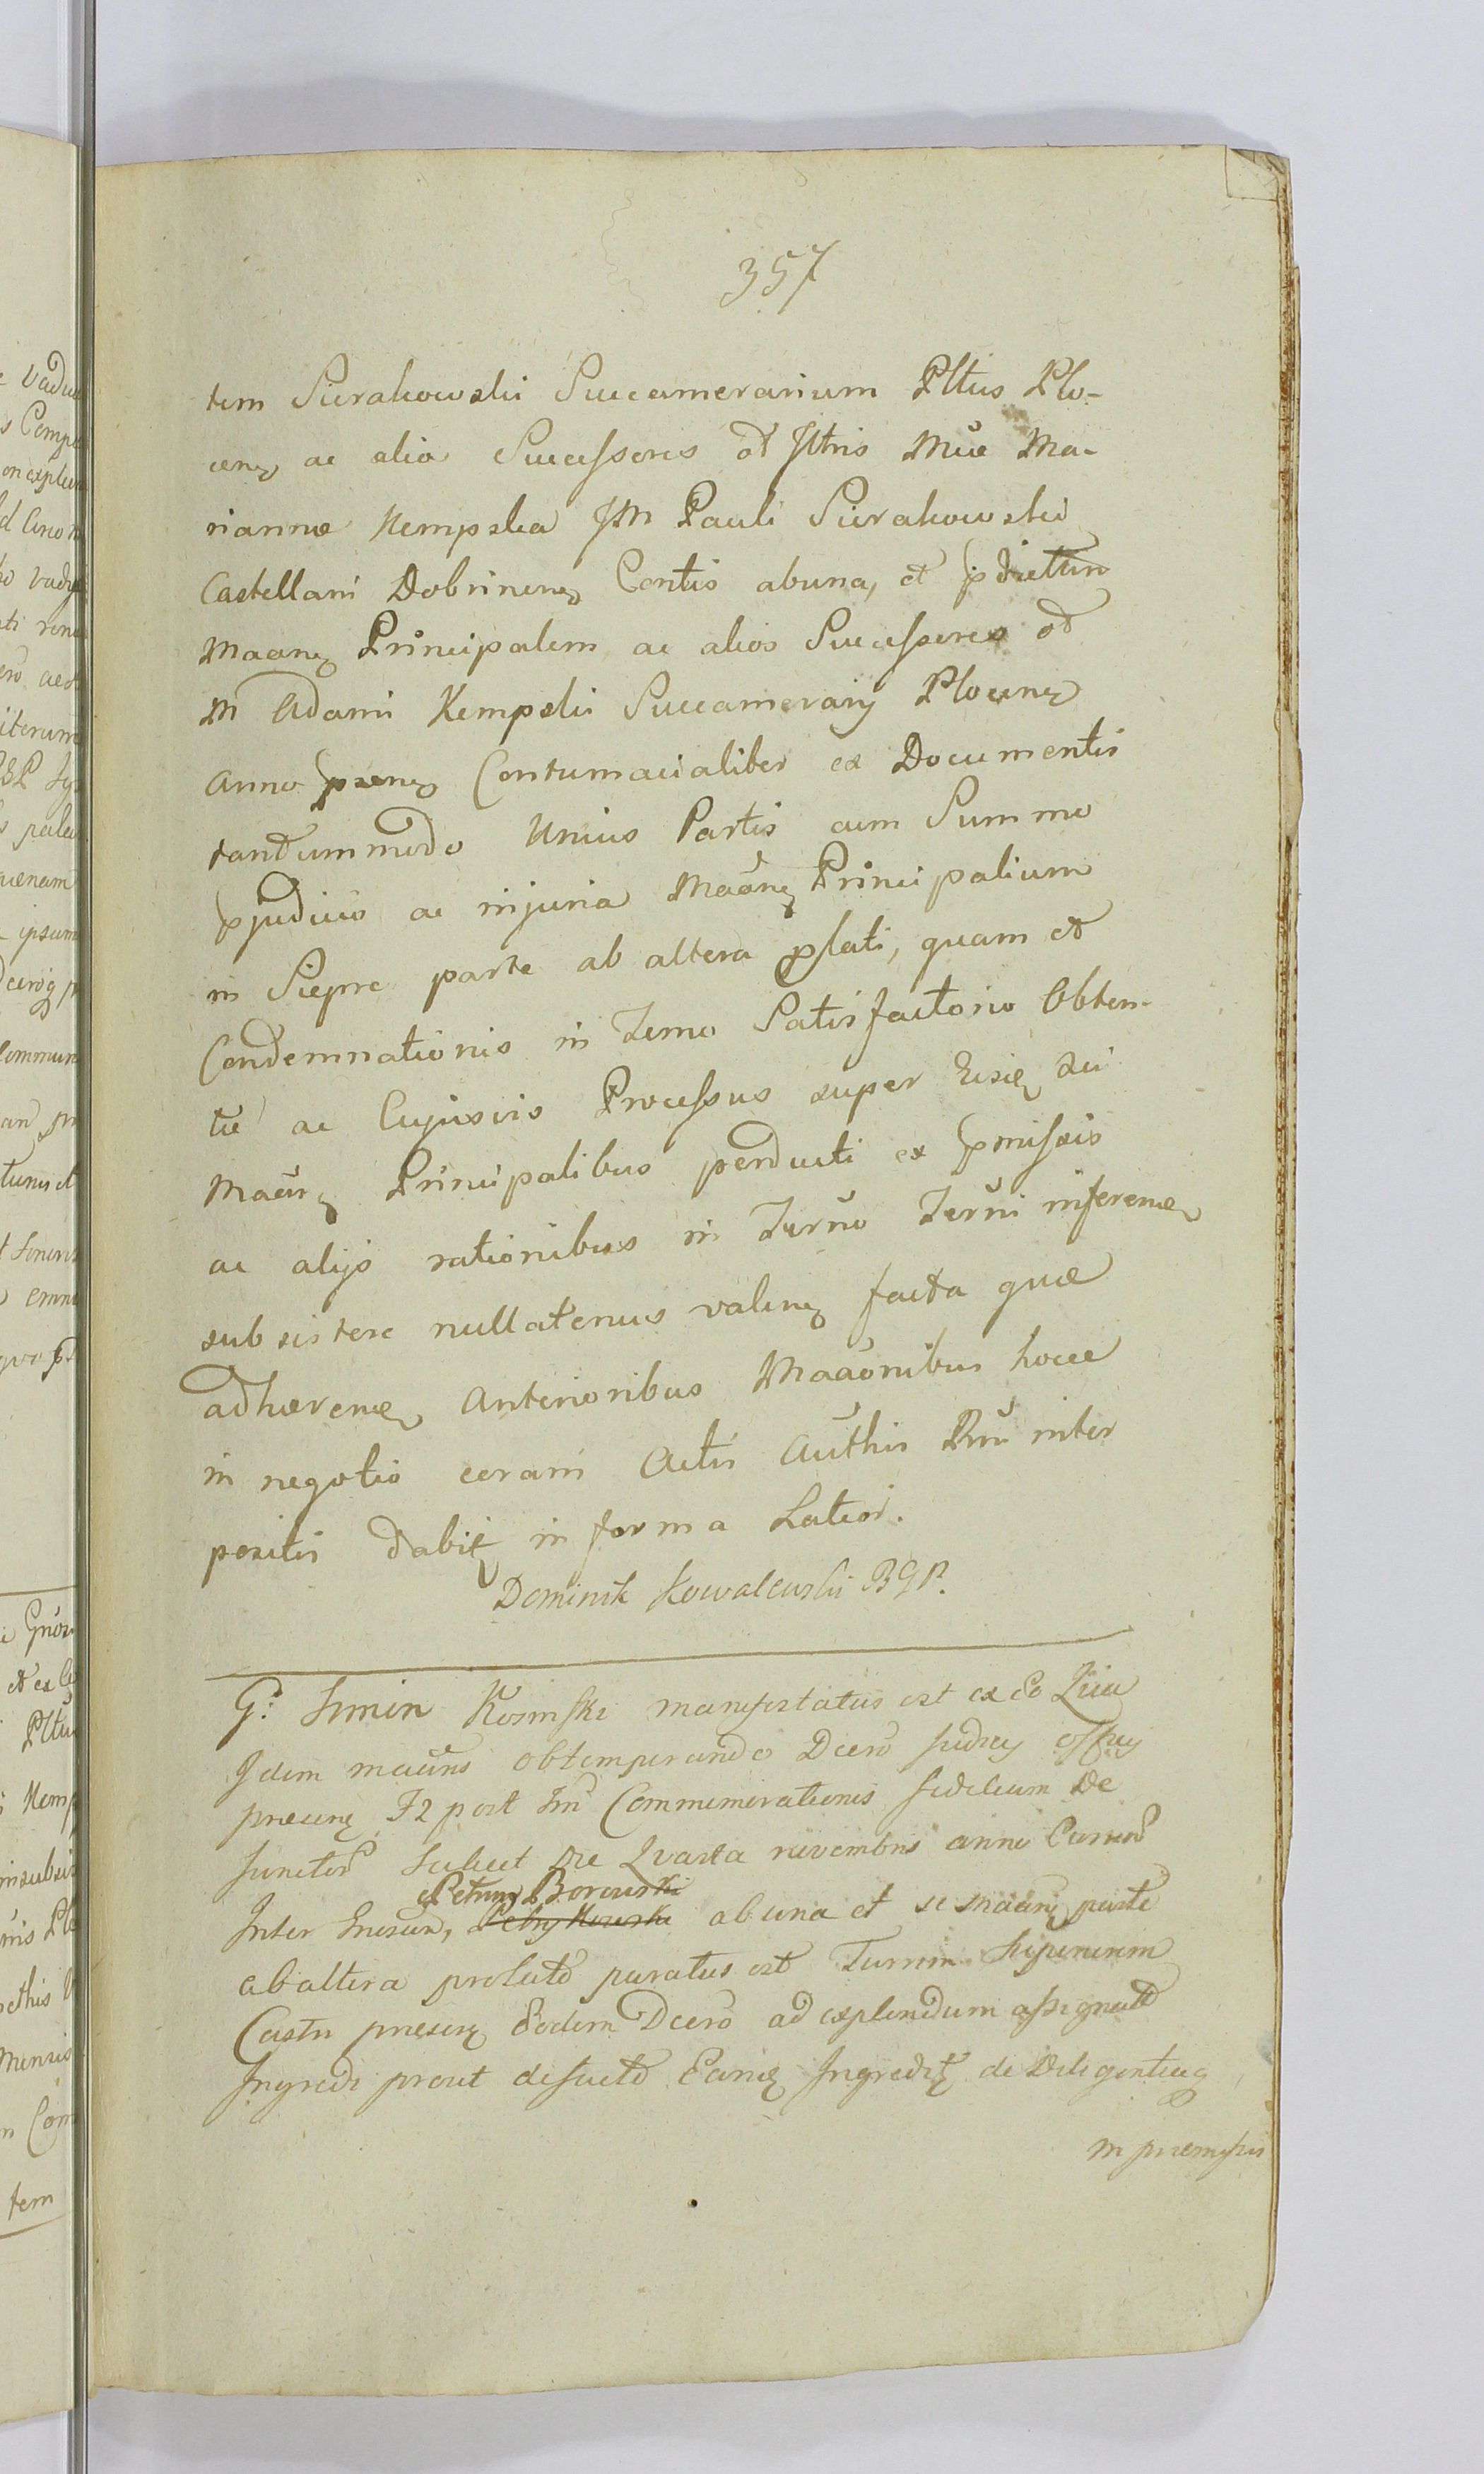 357
tem Sierakowski Succamerarium Pltus Plo-
cen ac alios Successores olt Jltris Mcæ Ma-
riannæ Kempska JM Pauli Sierakowski
Castellani Dobrinen Contis abuna, et pdictum
Maanę Principalem ac alios Successores olt
M Adami Kempski Succamerarij Plocenę
anno præn Contumacialiter ex Documentis
tantummodo Unius Partis cum Summo
pjudicio ac injuria Maanę Principalium
in Siepre parte ab altera plati, quam et
Condemnationis in Termo Satisfactorio Obten-
tæ ac Cujusvis Processus super Eisdę sui
Maanę Principalibus perducti ex pmissis
ac alijs rationibus in Termo Termi inferenę
subsistere nullatenus valenę facta quæ
adhærenę anterioribus Maaonibus hocce
in negotio coram Actis Authis Pnn inter
positis dabit in forma Latiori.
Dominik Kowalewski BGP.
G: Simin Kosinski manifestatus est ex Eo Quia
Idem maans obtemperando Dcero Judicij
præsenę F2 post Commemorationis fidelium De
functor Scilicet Die Quarta novembris anni Curren
Petrum Borowski
Inter abuna et se maanę parte
ab altera prolato paratus est Turrim Superiorem
Castri præsenę Eodem Dcero ad explendum assignat
Ingredi prout de facto Eandę Ingredit de Diligentiaq
in præmissis